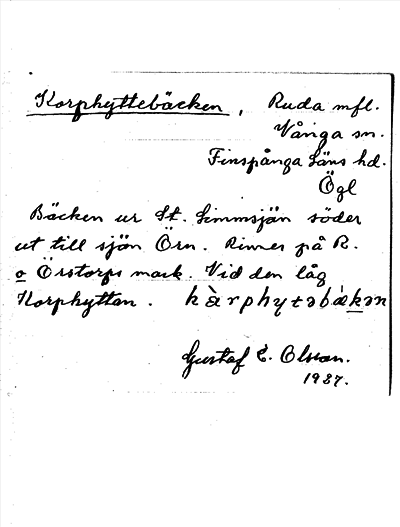 Korphyttebäcken, Ruda mfl.
Vånga sn.
Finspånga läns hd.
Ögl
Bäcken ur St. Limmsjön söder
ut till sjön Örn. Rinner på R.
o Örstorps mark. Vid den låg
Korphyttan. kàrphytəbäkən
Gustaf E. Olsson.
1937.